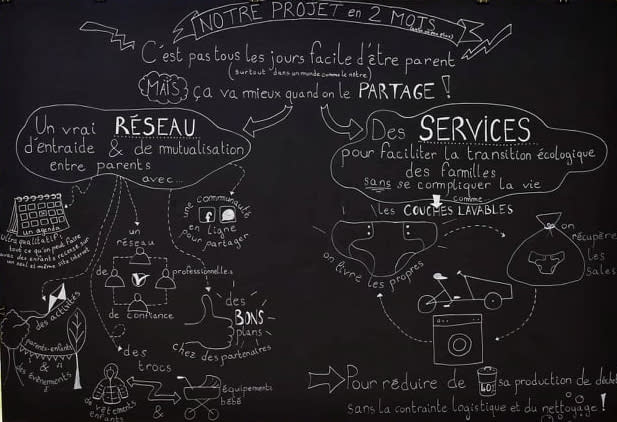 NOTRE PROJET en 2 MOTS
C'est pas tous les jours facile d'être parent
(surtout dans un monde comme le nôtre)
MAIS ça va mieux quand on le PARTAGE !
Un vrai RÉSEAU
d'entraide & de mutualisation
entre parents
avec...
un agenda
Ultra qualitatif :
tout ce qu'on peut faire
avec des enfants recensé sur
un seul et même site internet
des activités
parents-enfants
&
des évènements
!
un
réseau
de professionnel.les
de confiance
une communauté
en ligne
pour partager
des
BONS
plans
chez des partenaires
des
trocs
de vêtements
enfants
&
équipements
bébé
Des SERVICES
pour faciliter la transition écologique
des familles
sans se compliquer la vie
comme
les COUCHES LAVABLES
on livre les propres
on
récupère
les
sales
Pour réduire de 40% sa production de déchets
sans la contrainte logistique et du nettoyage !